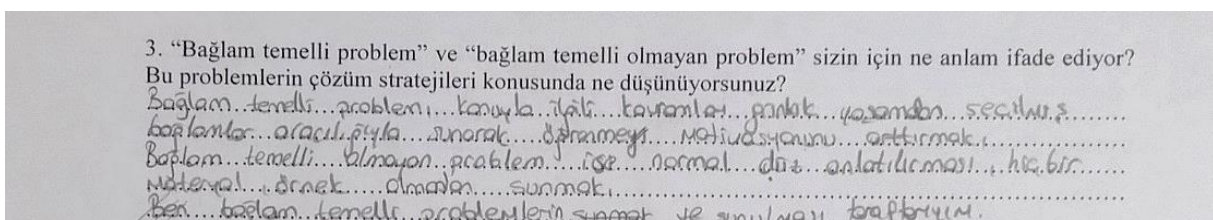 3. “Bağlam temelli problem” ve “bağlam temelli olmayan problem” sizin için ne anlam ifade ediyor?
Bu problemlerin çözüm stratejileri konusunda ne düşünüyorsunuz?
Bağlam temelli problem, konuyla ilgili kavramları günlük yaşamdan seçilmiş
bağlamlar aracılığıyla sunarak öğrenmeyi motivasyonunu arttırmak.
Bağlam temelli olmayan problem ise normal düz anlatılırması, hiç bir
materyal, örnek olmadan sunmak.
Ben bağlam temelli problemlerin sunmak ve taraftarıyım.